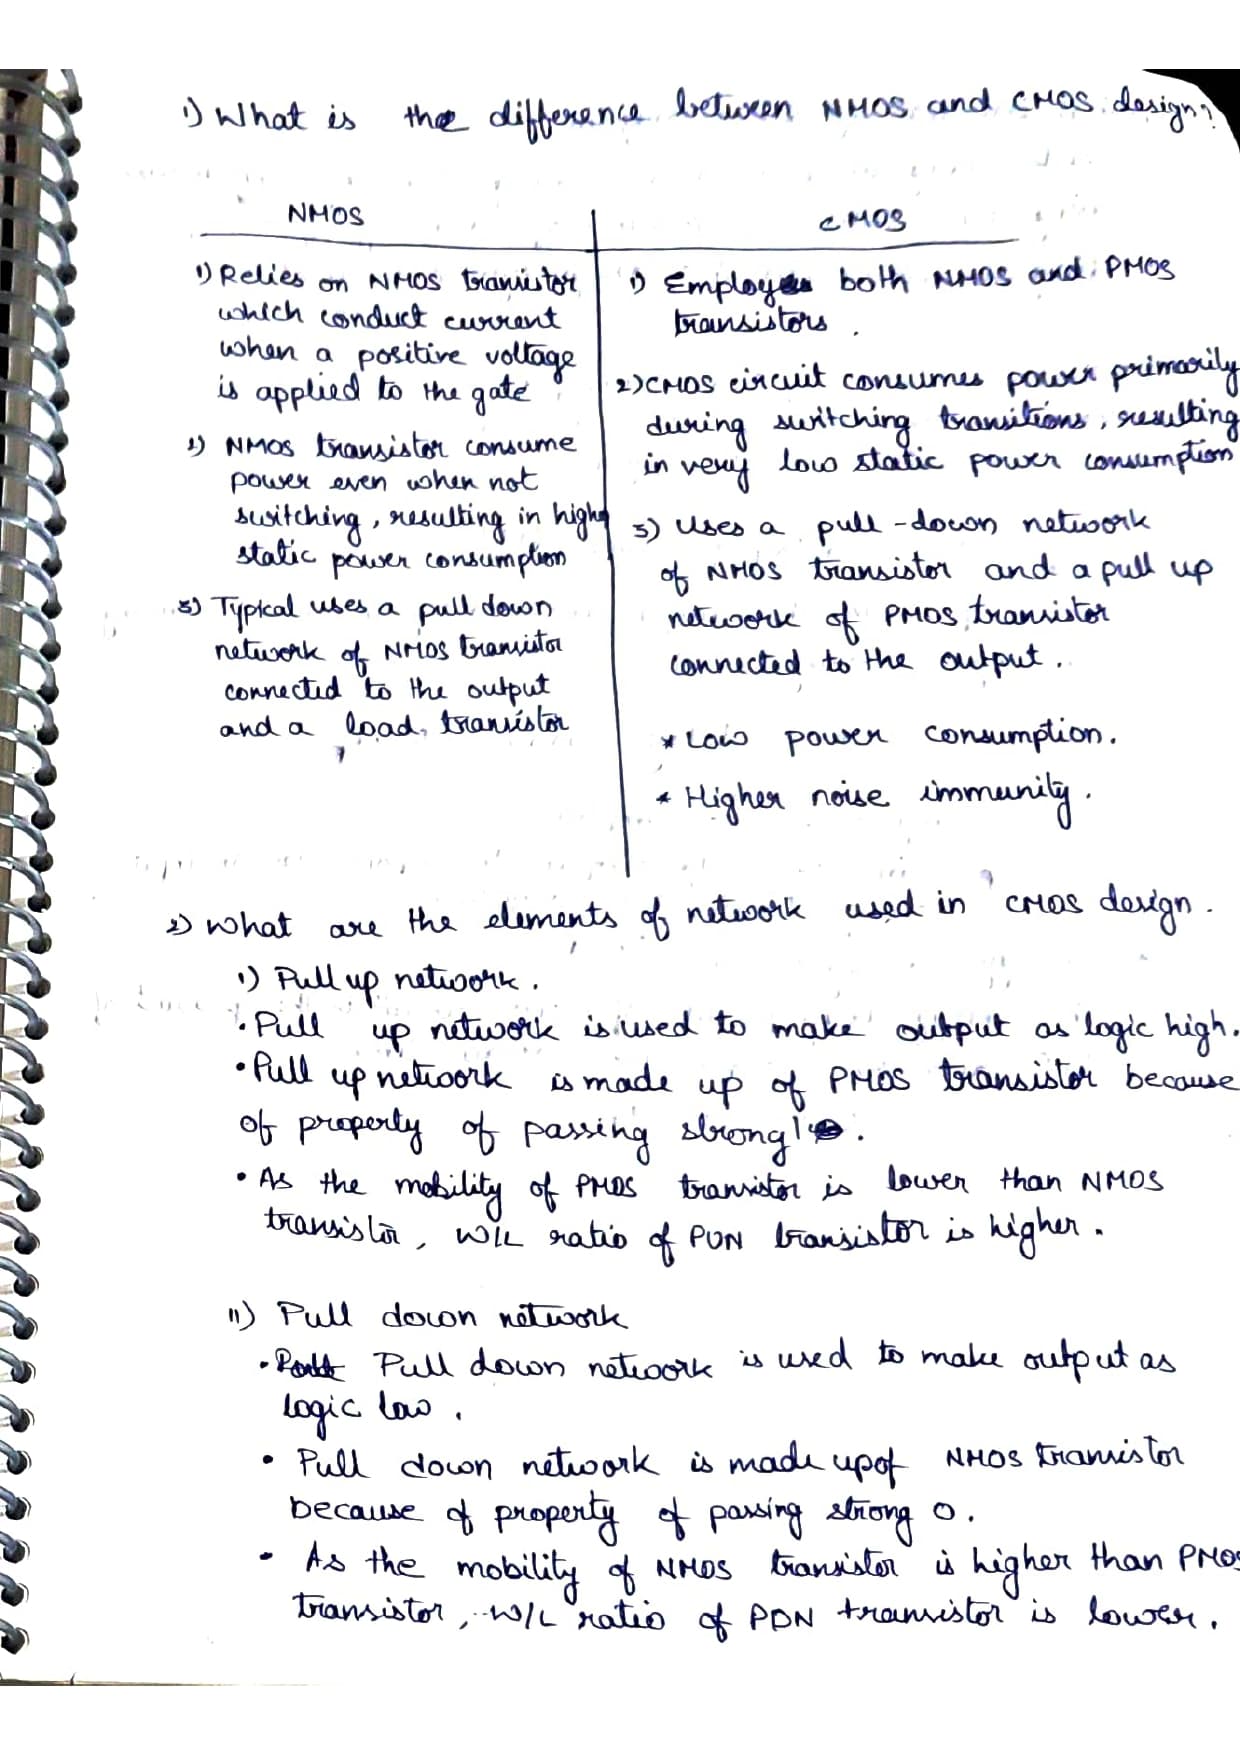 1) What is the difference between NMOS and CMOS design?
NMOS
1) Relies on NMOS transistor
which conduct current
when a positive voltage
is applied to the gate
2) NMOS transistor consume
power even when not
switching, resulting in high
static power consumption
3) Typical uses a pull down
network of NMOS transistor
connected to the output
and a load, transistor
CMOS
1) Employes both NMOS and PMOS
transistors.
2) CMOS circuit consumes power primarily
during switching transitions, resulting
in very low static power consumption
3) Uses a pull-down network
of NMOS transistor and a pull up
network of PMOS transistor
connected to the output.
* Low power consumption.
* Higher noise immunity.
2) What are the elements of network used in CMOS design.
1) Pull up network.
• Pull up network is used to make output as logic high.
• Pull up network is made up of PMOS transistor because
of property of passing strong 1.
• As the mobility of PMOS transistor is lower than NMOS
transistor, W/L ratio of PUN transistor is higher.
11) Pull down network
• Pull down network is used to make output as
logic low.
• Pull down network is made up of NMOS transistor
because of property of passing strong 0.
• As the mobility of NMOS transistor is higher than PMOS
transistor, W/L ratio of PDN transistor is lower.